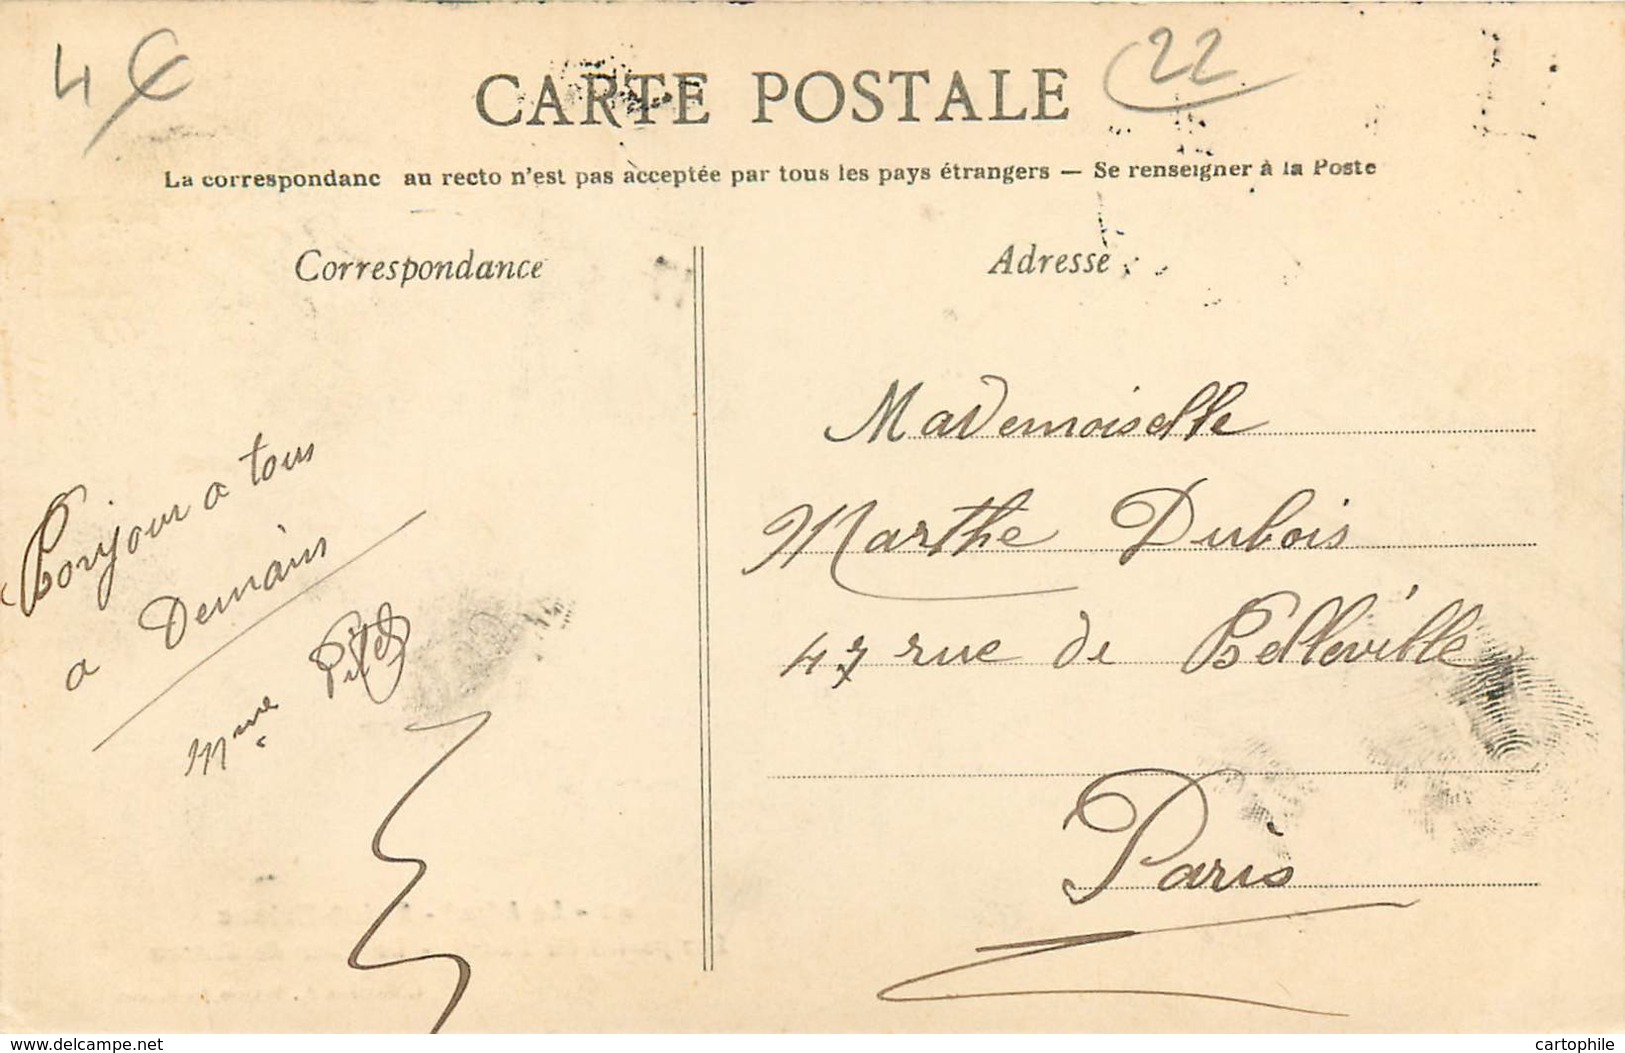 4 €
22
CARTE POSTALE
La correspondanc au recto n'est pas acceptée par tous les pays étrangers — Se renseigner à la Poste
Correspondance
Adresse
Bonjour a tous
a Demain
Mme
Mademoiselle
Marthe Dubois
47 rue de Belleville
Paris
www.delcampe.net
cartophile